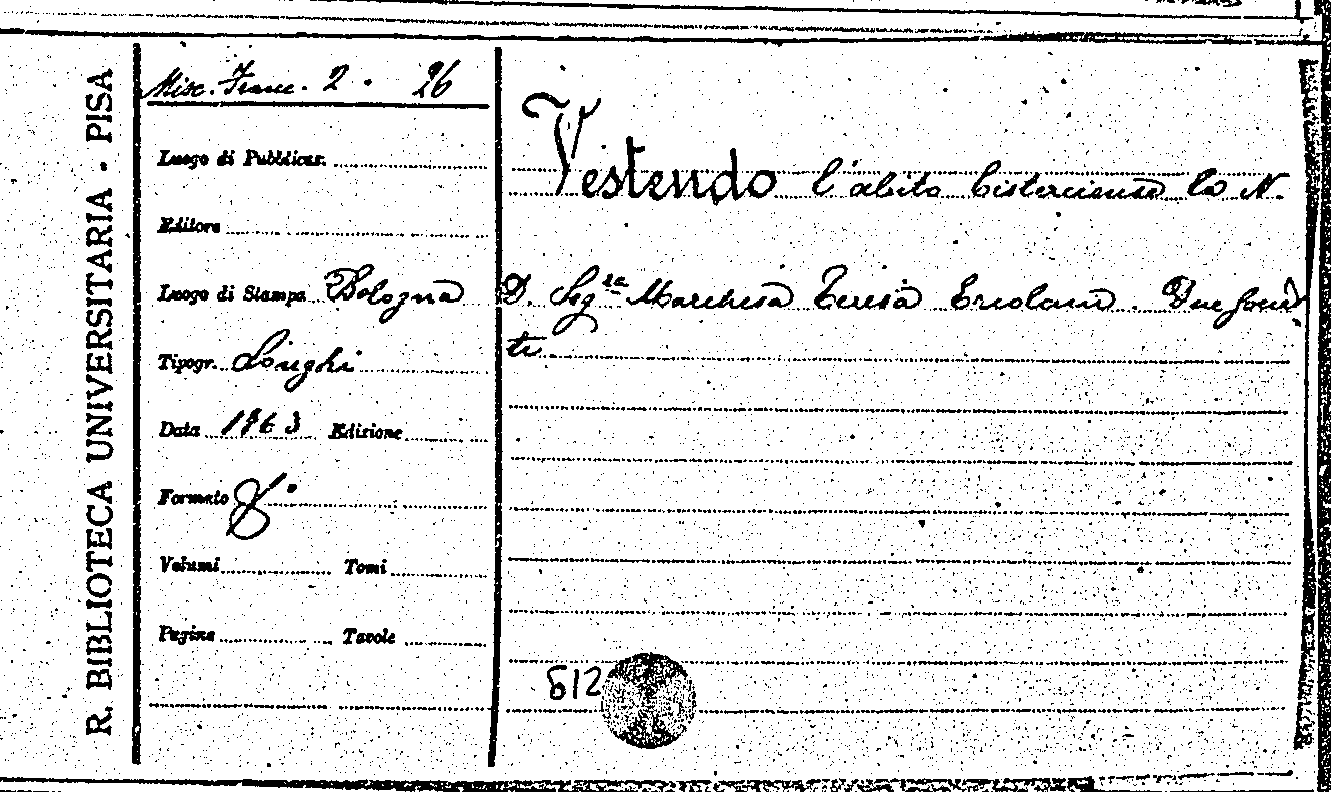 R. BIBLIOTECA UNIVERSITARIA - PISA
Misc. Franc. 2 - 26
Luogo di Pubblicaz.
Editore
Luogo di Stampa Bologna
Tipogr. Longhi
Data 1763 Edizione
Formato 8°
Volumi Tomi
Pagine Tavole
Vestendo l'abito Cisterciense la N.
D. Sigra Marchesa Teresa Ercolani.
612